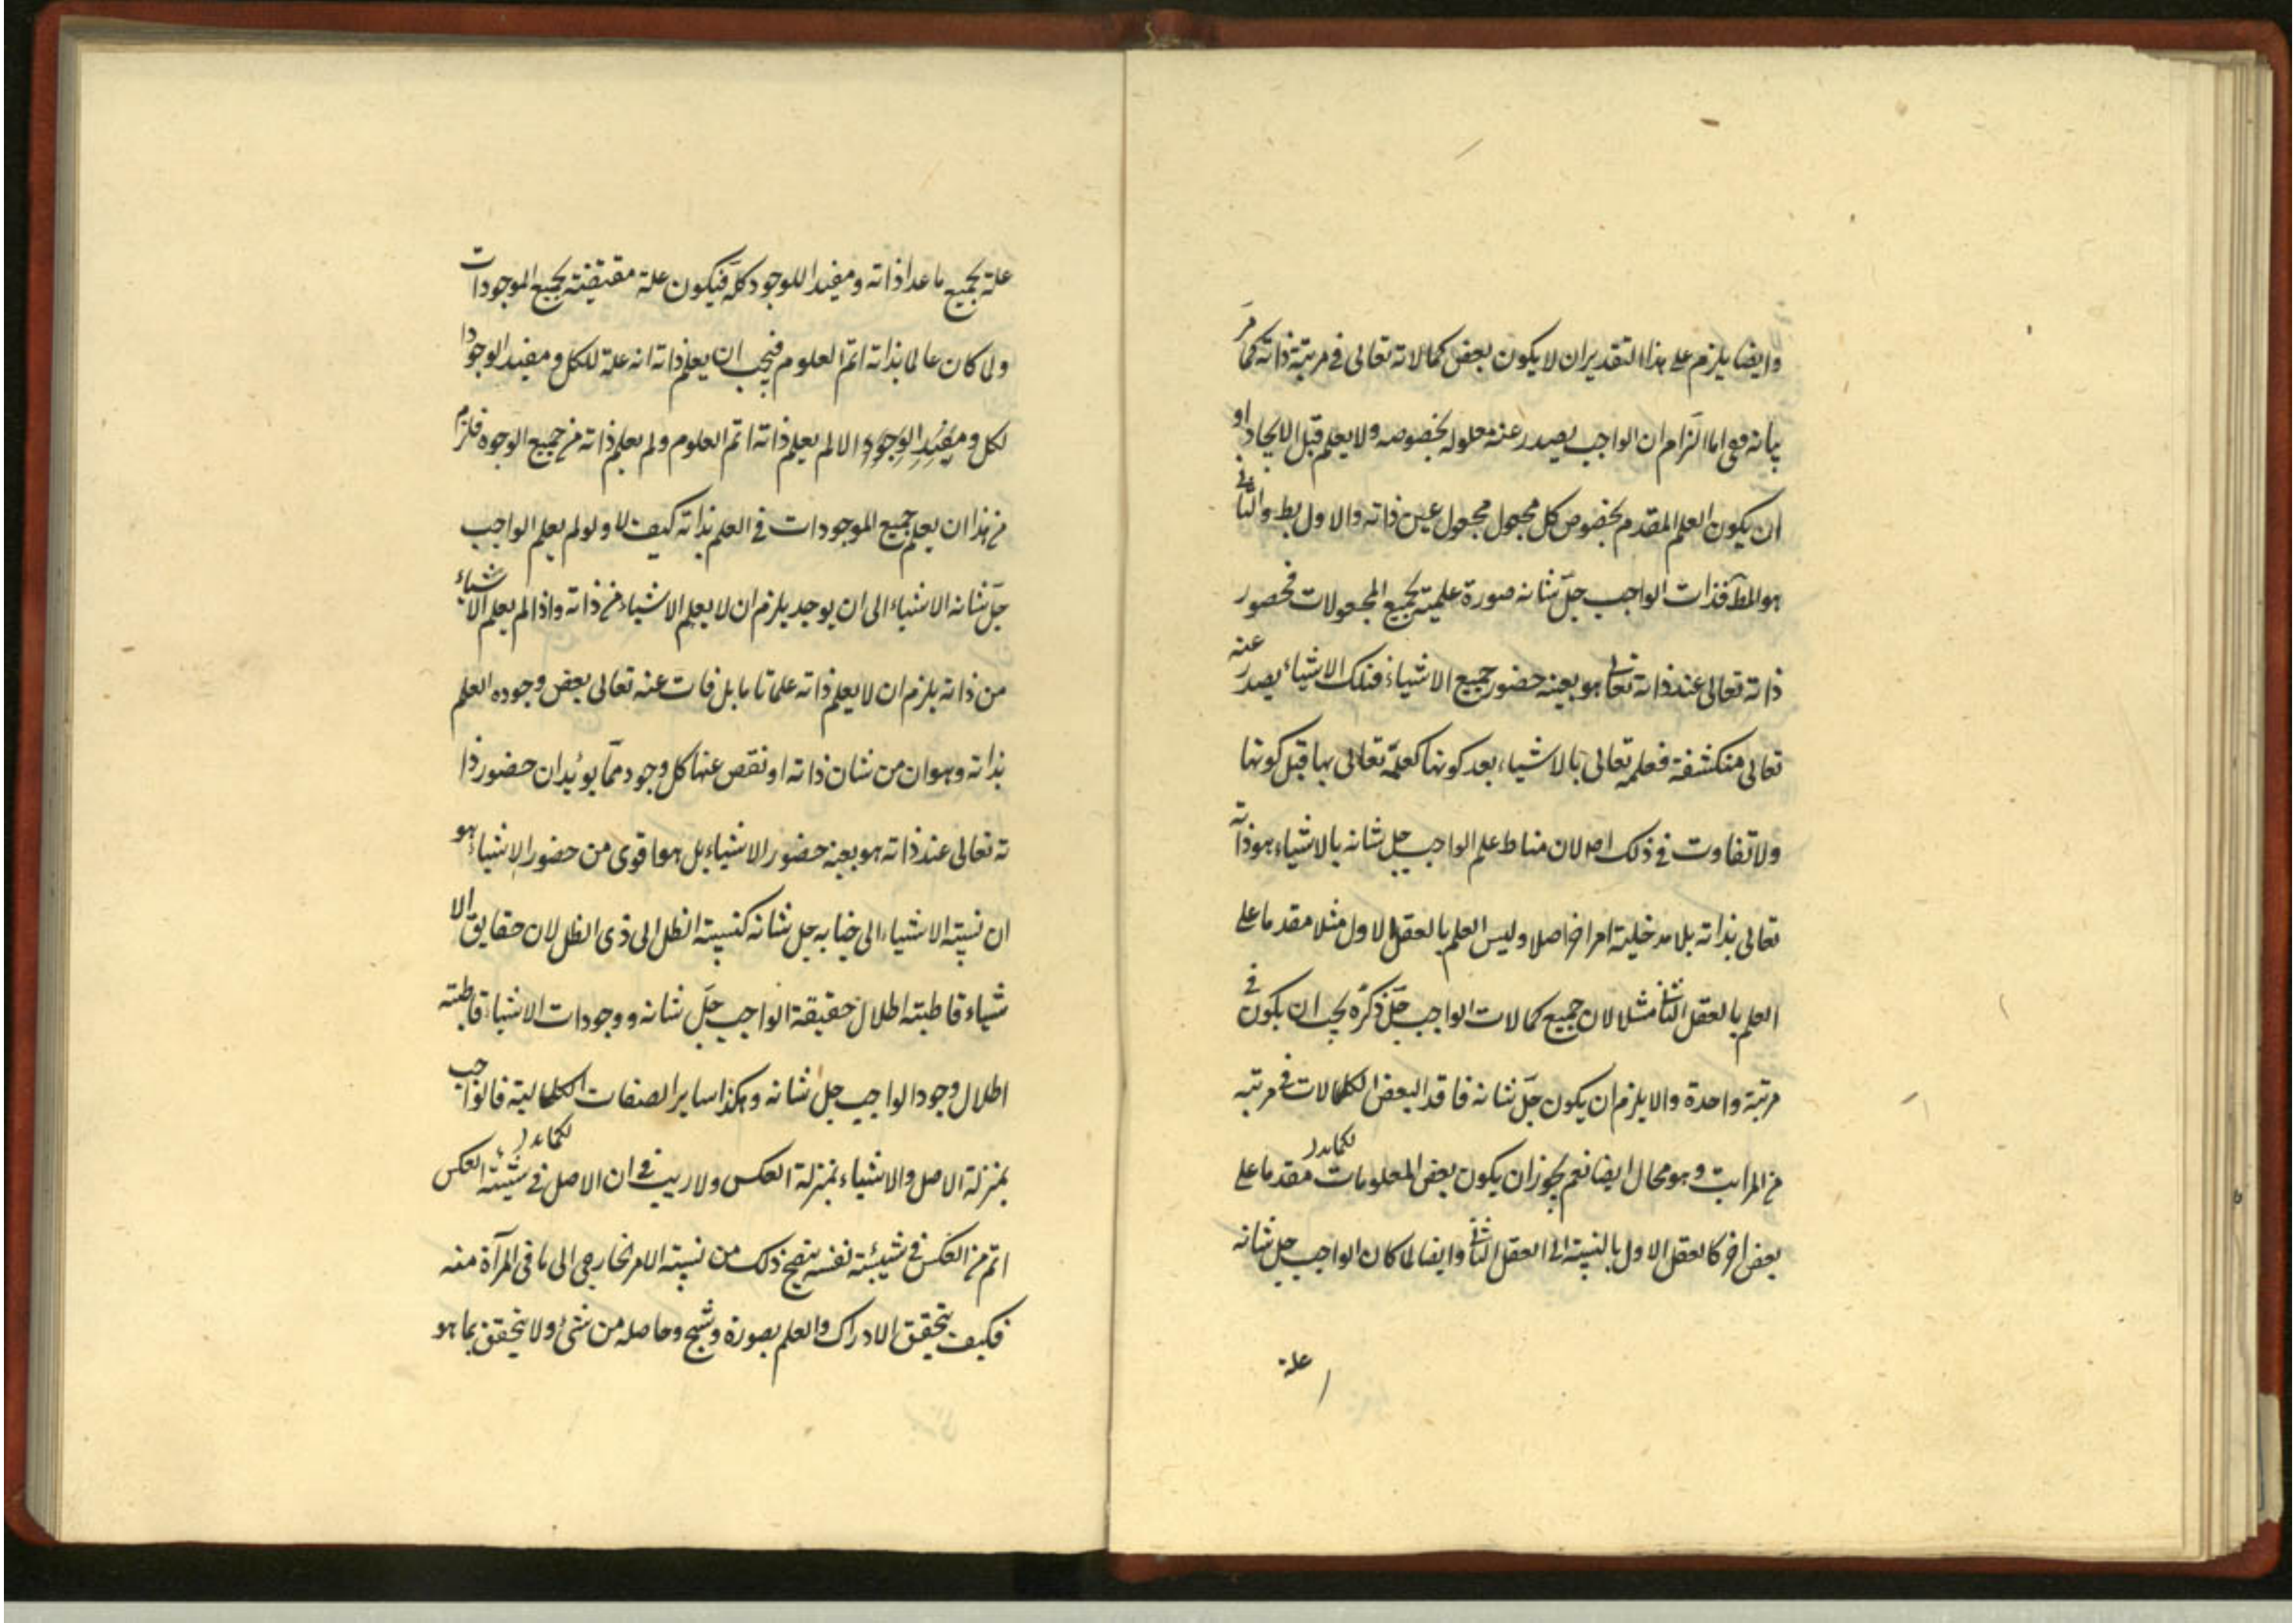 وايضا يلزم على هذا التقدير ان لا يكون بعض كمالاته تعالى فى مرتبة ذاته كما مرّ
بيانه وهى اما التزام ان الواجب يصدر عنه معلوله بخصوصه ولا يعلم قبل الايجاد او
ان يكون العلم المقدم بخصوص كل مجعول مجعول عين ذاته والاول بط والثانى
هو المط فذات الواجب جلّ شانه صورة علمية لجميع المجعولات فحضور
ذاته تعالى عند ذاته تعالى هو بعينه حضور جميع الاشياء فتلك الاشياء يصدر عنه
تعالى منكشفة فعلمه تعالى بالاشياء بعد كونها كعلمه تعالى بها قبل كونها
ولا تفاوت فى ذلك اصلا لان مناط علم الواجب جل شانه بالاشياء هو ذاته
تعالى بذاته بلا مدخلية امر اخر اصلا وليس العلم بالعقل الاول مثلا مقدما على
العلم بالعقل الثانى مثلا لان جميع كمالات الواجب جلّ ذكره يجب ان يكون فى
مرتبة واحدة والا يلزم ان يكون جلّ شانه فاقد البعض الكمالات فى مرتبه
من المراتب وهو محال ايضا نعم يجوز ان يكون بعض المعلومات مقدما على
بعض اخر كالعقل الاول بالنسبته الى العقل الثانى وايضا لما كان الواجب جل شانه
علة
علة لجميع ما عدا ذاته ومفيدا للوجود كله فيكون علة مقتضية لجميع الموجودات
ولما كان عالما بذاته اتم العلوم فيجب ان يعلم ذاته انه علة للكل ومفيد الوجودا
لكل ومفيد الوجود والا لم يعلم ذاته اتم العلوم ولم يعلم ذاته من جميع الوجوه فلزم
من هذا ان يعلم جميع الموجودات فى العلم بذاته كيف لا ولو لم يعلم الواجب
جلّ شانه الاشياء الى ان يوجد يلزم ان لا يعلم الاشياء من ذاته واذا لم يعلم الاشياء
من ذاته يلزم ان لا يعلم ذاته علما تاما بل فات عنه تعالى بعض وجوده العلم
بذاته وهو ان من شان ذاته او نقص عنها كل وجود مما يوئيد ان حضور ذا
ته تعالى عند ذاته هو بعينه حضور الاشياء بل هو اقوى من حضور الاشياء هو
ان نسبته الاشياء الى جنابه جل شانه كنسبته الظل الى ذى الظل لان حقايق الا
شياء قاطبته اظلال حقيقة الواجب جلّ شانه ووجودات الاشياء قاطبته
اظلال وجود الواجب جل شانه وهكذا ساير الصفات الكمالية فالواجب
بمنزلة الاصل والاشياء بمنزلة العكس ولا ريب فى ان الاصل فى شيئيته العكس
اتم من العكس فى شيئيته نفسه يتضح ذلك من نسبته الامر الخارجى الى ما فى المرآة منه
فكيف يتحقق الادراك والعلم بصورة وشبح وحاصله من شئ ولا يتحقق بما هو